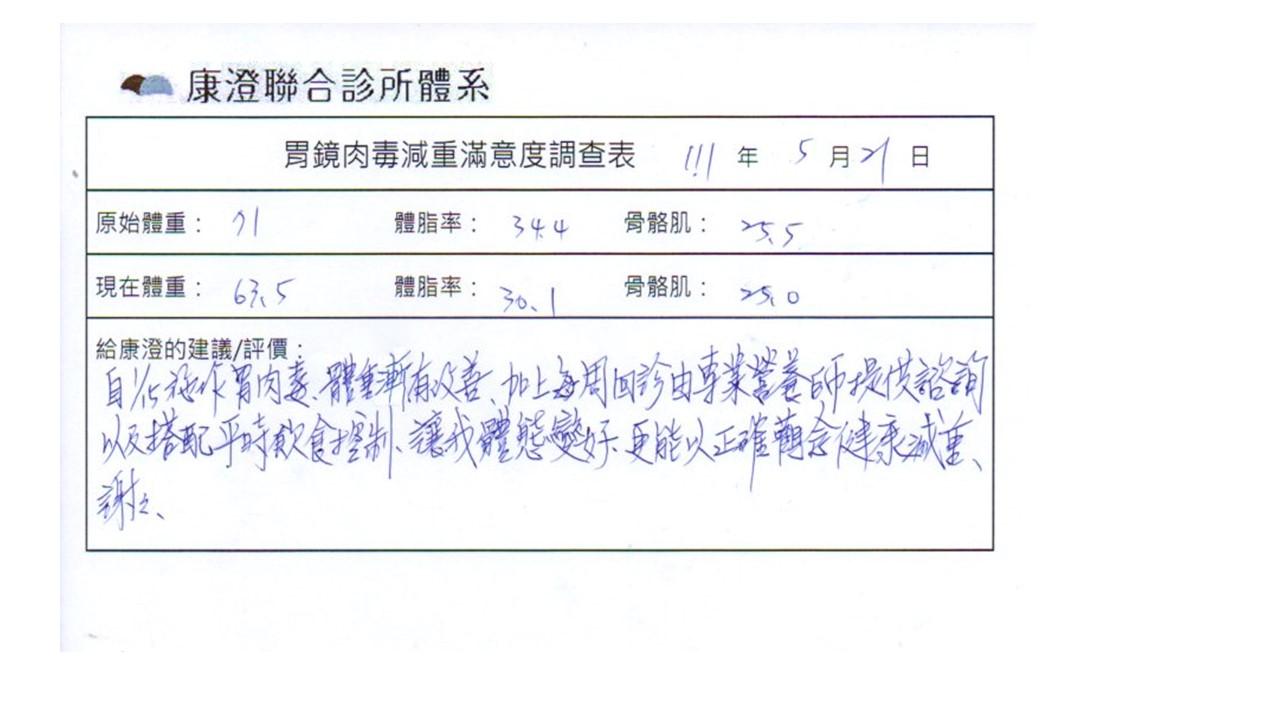 康澄聯合診所體系
胃鏡肉毒減重滿意度調查表 111 年 5 月 21 日
原始體重: 71 體脂率: 34.4 骨骼肌: 25.5
現在體重: 63.5 體脂率: 30.1 骨骼肌: 25.0
給康澄的建議/評價:
自1/5施作胃肉毒、體重漸有改善、加上每周回診由專業營養師提供諮詢
以及搭配平時飲食控制、讓我體態變好、更能以正確觀念健康減重、
謝々、